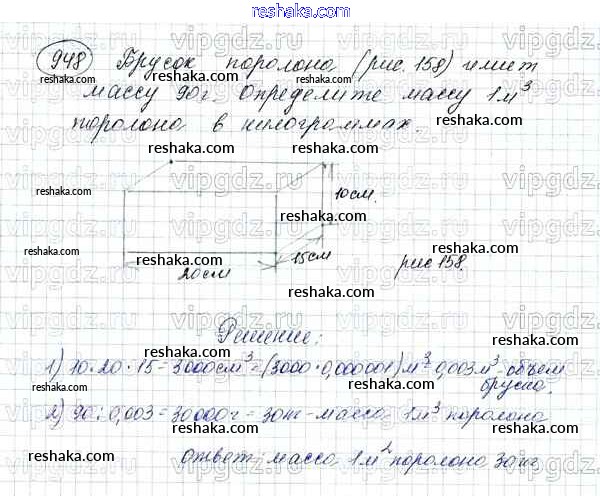 reshaka.com
948 Брусок поролона (рис. 158) имеет
массу 90г. Определите массу 1м³
поролона в килограммах.
10см.
15см
20см
рис 158.
Решение:
1) 10·20·15=3000см³=(3000·0,000001)м³=0,003м³-объем
бруска.
2) 90:0,003=30000г=30кг-масса 1м³ поролона
ответ: масса 1м² поролона 30кг.